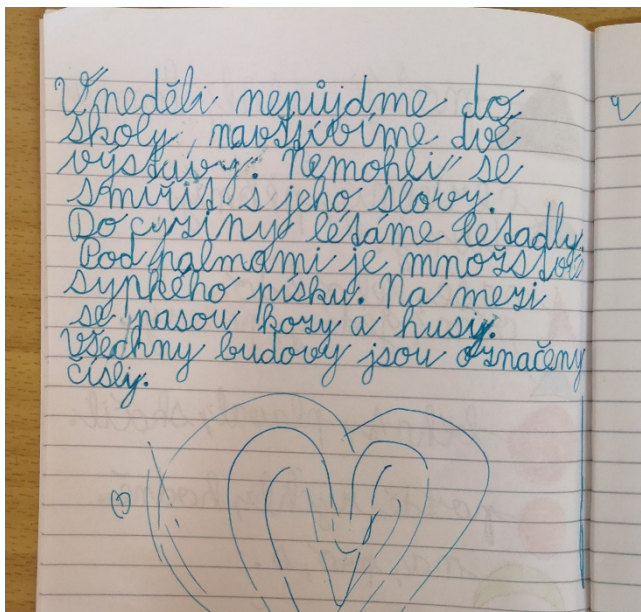 V neděli nepůjdme do
školy, navštívíme dvě
výstavy. Nemohli se
smířit s jeho slovy.
Do cyziny létáme letadly.
Pod palmami je množství
sypkého písku. Na mezi
se pasou kozy a husy.
Všechny budovy jsou označeny
čísly.